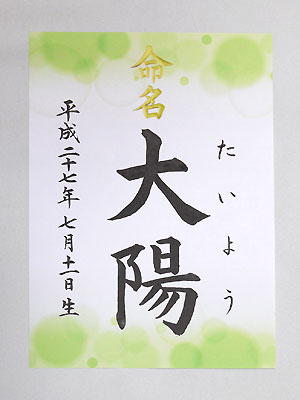 命名
たいよう
大陽
平成二十七年七月十一日生